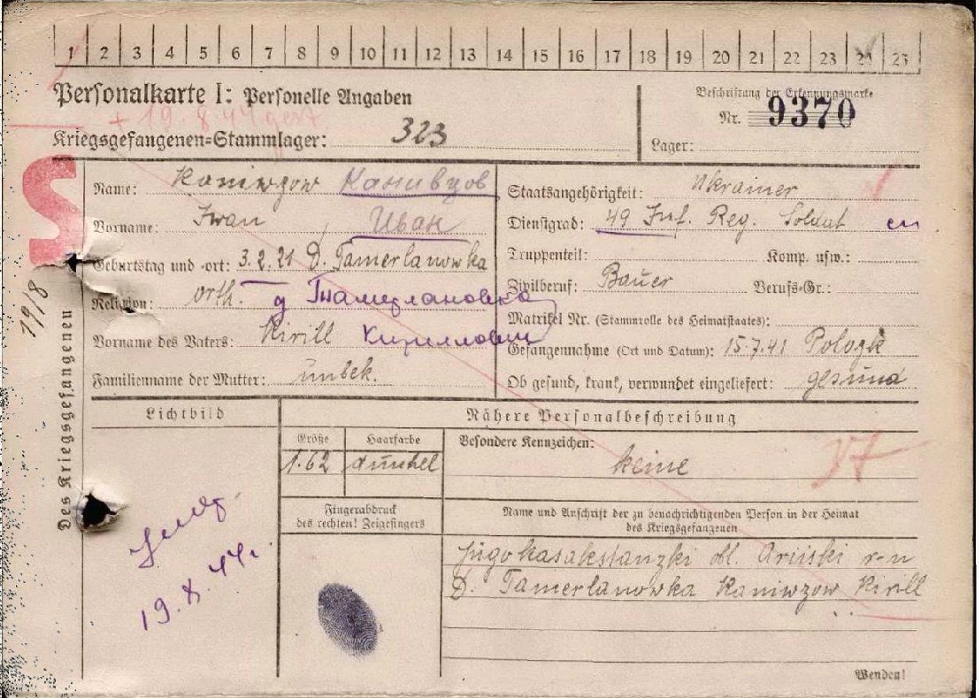 1 2 3 4 5 6 7 8 9 10 11 12 13 14 15 16 17 18 19 20 21 22 23 24 25
Personalkarte I: Personelle Angaben
+ 19.8.44 gest
Kriegsgefangenen=Stammlager: 323
Beschriftung der Erkennungsmarke
Nr. 9370
Lager:
S
19/8
Des Kriegsgefangenen
Name: Kaniwzow Канивцов
Vorname: Iwan Иван
Geburtstag und -ort: 3.2.21 D. Tamerlanowka
Religion: orth. д Тамерлановка
Vorname des Vaters: Kirill Кириллович
Familienname der Mutter: unbek.
Staatsangehörigkeit: Ukrainer
Dienstgrad: 49 Inf. Reg. Soldat
Truppenteil: Komp. usw.:
Zivilberuf: Bauer Berufs-Gr.:
Matrikel Nr. (Stammrolle des Heimatstaates):
Gefangennahme (Ort und Datum): 15.7.41 Polozk
Ob gesund, krank, verwundet eingeliefert: gesund
Lichtbild
19.8.44.
Nähere Personalbeschreibung
Größe Haarfarbe
1.62 dunkel
Besondere Kennzeichen:
keine
Fingerabdruck
des rechten! Zeigefingers
Name und Anschrift der zu benachrichtigenden Person in der Heimat
des Kriegsgefangenen
Jugokasakstanzki obl. Ariiski r-n
D. Tamerlanowka Kaniwzow Kirill
Wenden!